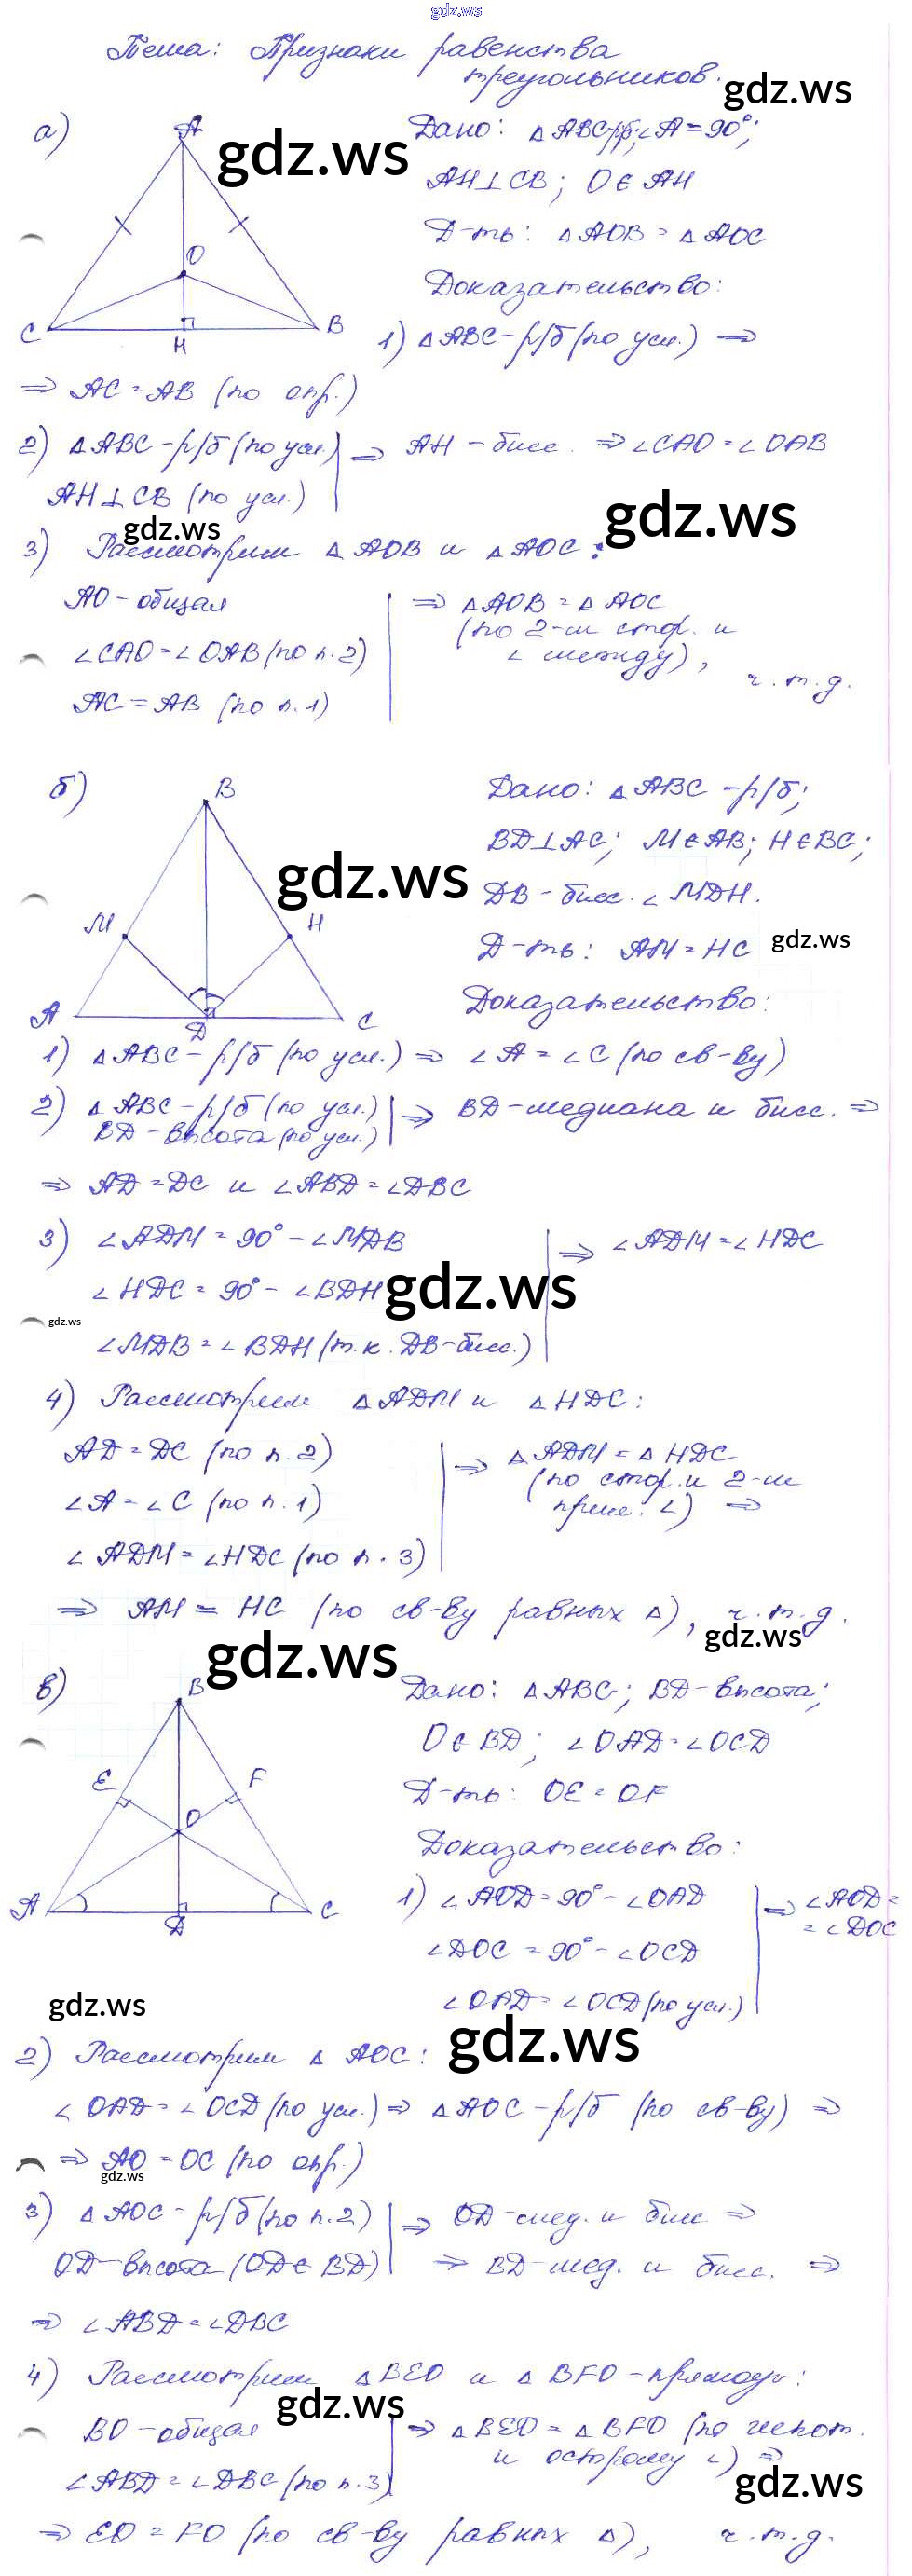 gdz.ws
Тема: Признаки равенства
треугольников.
gdz.ws
а)
A
O
C
H
B
gdz.ws
Дано: △ABC-р/б; ∠A=90°;
AH⊥CB; O∈AH
Д-ть: △AOB=△AOC
Доказательство:
1) △ABC-р/б (по усл.) ⇒
⇒ AC=AB (по опр.)
2) △ABC-р/б (по усл.) ⇒ AH-бисс. ⇒ ∠CAO=∠OAB
AH⊥CB (по усл.)
gdz.ws
gdz.ws
3) Рассмотрим △AOB и △AOC:
AO-общая ⇒ △AOB=△AOC
(по 2-м стор. и
∠CAO=∠OAB (по п.2) ∠ между),
ч.т.д.
AC=AB (по п.1)
б)
B
M
H
A
D
C
gdz.ws
Дано: △ABC-р/б;
BD⊥AC; M∈AB; H∈BC;
DB-бисс. ∠MDH.
Д-ть: AM=HC
gdz.ws
Доказательство:
1) △ABC-р/б (по усл.) ⇒ ∠A=∠C (по св-ву)
2) △ABC-р/б (по усл.) ⇒ BD-медиана и бисс. ⇒
BD-высота (по усл.)
⇒ AD=DC и ∠ABD=∠DBC
3) ∠ADM=90°-∠MDB ⇒ ∠ADM=∠HDC
∠HDC=90°-∠BDH
gdz.ws
gdz.ws
∠MDB=∠BDH (т.к. DB-бисс.)
4) Рассмотрим △ADM и △HDC:
AD=DC (по п.2) ⇒ △ADM=△HDC
(по стор. и 2-м
∠A=∠C (по п.1) прил. ∠) ⇒
∠ADM=∠HDC (по п.3)
⇒ AM=HC (по св-ву равных △), ч.т.д.
gdz.ws
gdz.ws
в)
B
E
F
O
A
D
C
Дано: △ABC; BD-высота;
O∈BD; ∠OAD=∠OCD
Д-ть: OE=OF
Доказательство:
1) ∠AOD=90°-∠OAD ⇒ ∠AOD=
=∠DOC
∠DOC=90°-∠OCD
∠OAD=∠OCD (по усл.)
gdz.ws
gdz.ws
2) Рассмотрим △AOC:
∠OAD=∠OCD (по усл.) ⇒ △AOC-р/б (по св-ву) ⇒
⇒ AO=OC (по опр.)
gdz.ws
3) △AOC-р/б (по п.2) ⇒ OD-мед. и бисс ⇒
OD-высота (OD∈BD) ⇒ BD-мед. и бисс. ⇒
⇒ ∠ABD=∠DBC
4) Рассмотрим △BEO и △BFO-прямоуг:
gdz.ws
BO-общая ⇒ △BEO=△BFO (по гипот.
и острому ∠) ⇒
∠ABD=∠DBC (по п.3)
gdz.ws
⇒ EO=FO (по св-ву равных △), ч.т.д.